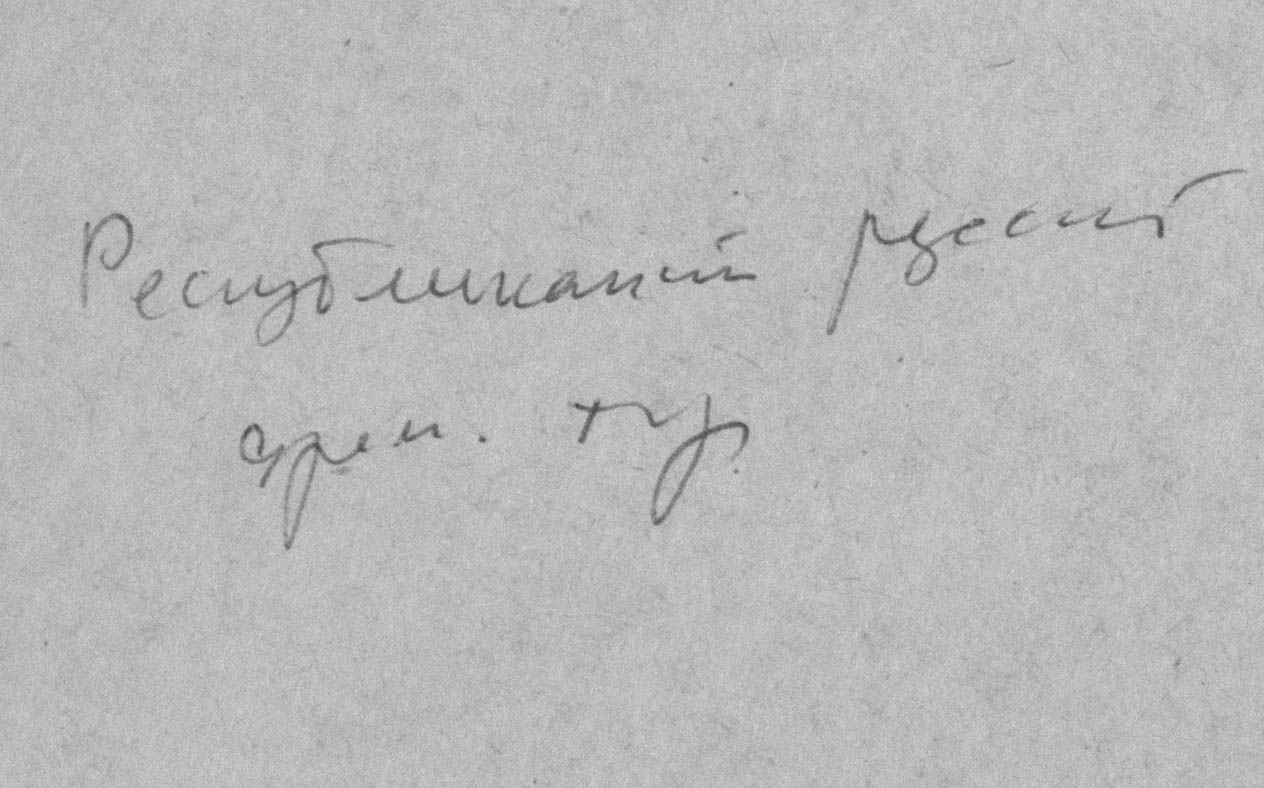 Республиканский русский
драм. т-р